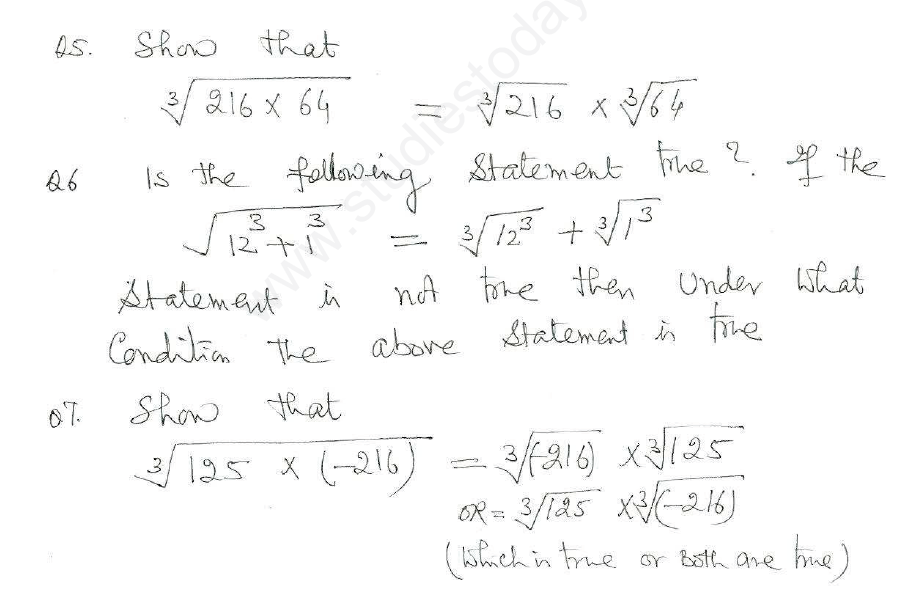 Q5. Show that
∛(216 × 64) = ∛216 × ∛64
Q6 Is the following statement true? If the
√(12³ + 1³) = ∛12³ + ∛1³
Statement is not true then under what
Condition the above statement is true
Q7. Show that
∛(125 × (-216)) = ∛(-216) × ∛125
OR = ∛125 × ∛(-216)
(Which is true or Both are true)
www.studiestoday